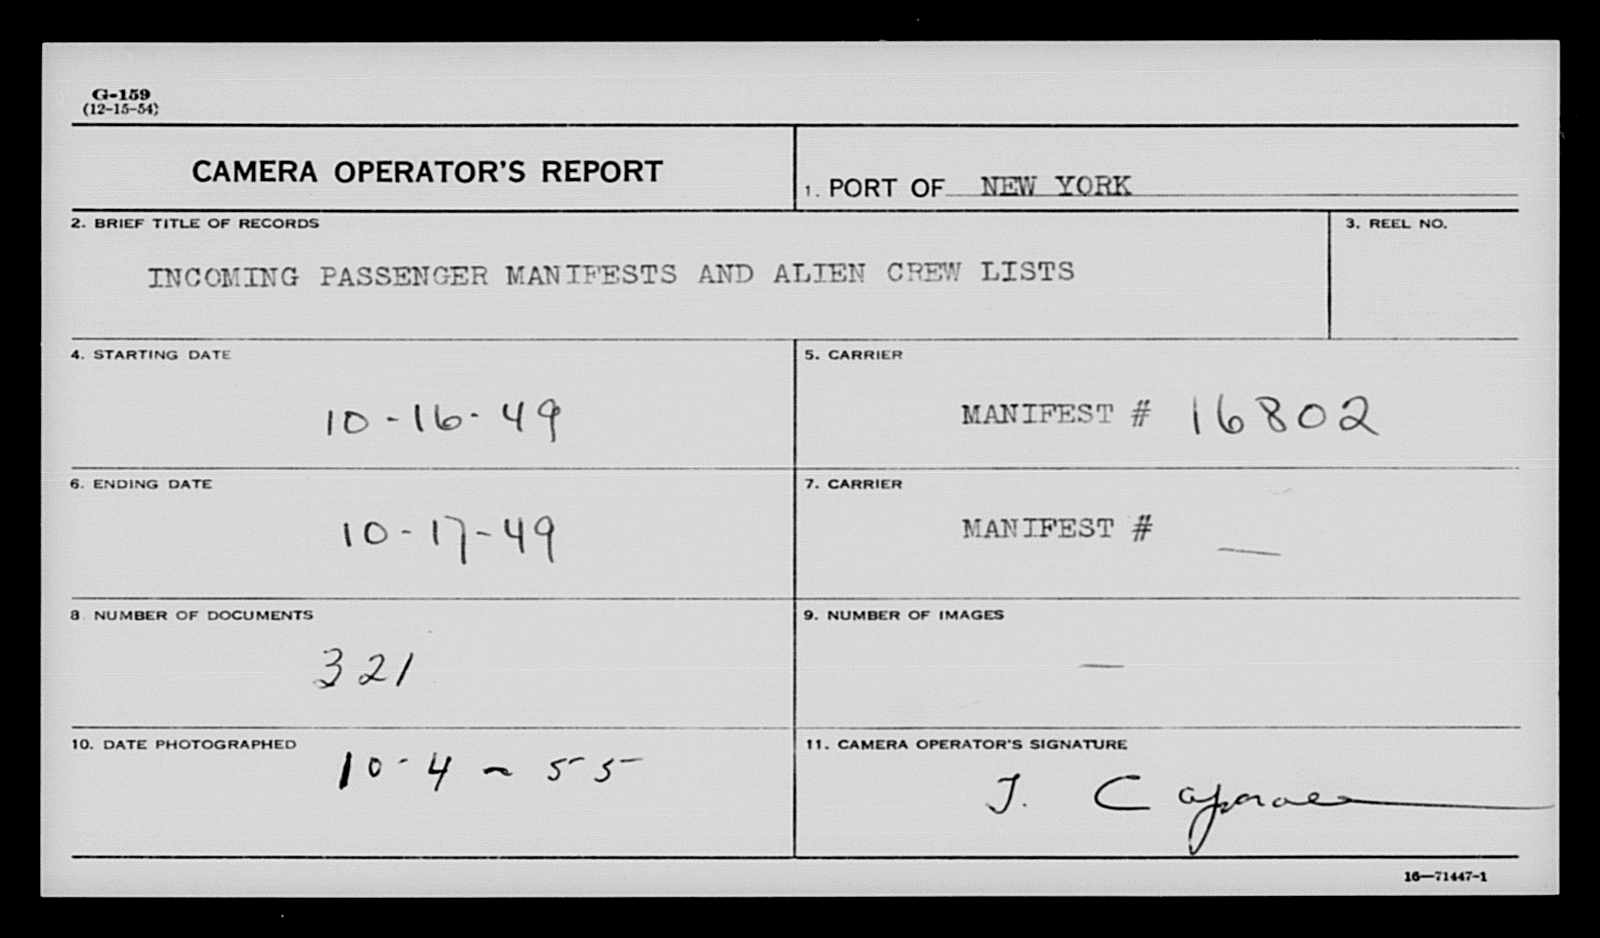 G-159
(12-15-54)
CAMERA OPERATOR'S REPORT
1. PORT OF NEW YORK
2. BRIEF TITLE OF RECORDS
3. REEL NO.
INCOMING PASSENGER MANIFESTS AND ALIEN CREW LISTS
4. STARTING DATE
5. CARRIER
10-16-49
MANIFEST # 16802
6. ENDING DATE
7. CARRIER
10-17-49
MANIFEST # —
8. NUMBER OF DOCUMENTS
9. NUMBER OF IMAGES
321
—
10. DATE PHOTOGRAPHED
11. CAMERA OPERATOR'S SIGNATURE
10-4-55
J. C
16—71447-1